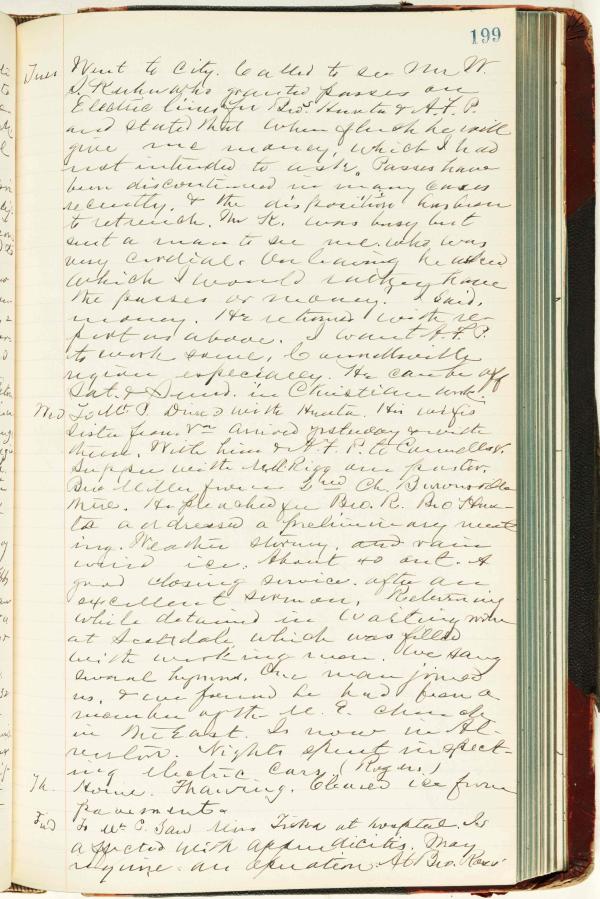 199
Tues Went to City. Called to see Mr W.
S. Kuhn who granted passes on
Electric lines for Bro. Hunta & A. F. P.
and stated that when flush he will
give me money, which I had
not intended to ask. Passes have
been discontinued in many cases
recently, & the disposition has been
to retrench. Mr K. was busy but
sent a man to see me. who was
very cordial. On leaving he asked
which I would rather have
the passes or money. I said,
money. He returned with re-
port as above. I want A. F. P.
to work some, Connellsville
region especially. He can be off
Sat. & Sund. in Christian work.
Wed To Mt P. Dined with Hunta. His wife's
sister from Va arrived yesterday & with
them. With him & A. F. P. to Connellsv.
Supper with M. H. Rigg our pastor.
Bro Miller from 2nd Ch. Brownsville
there. He preached for Bro. R. Bro Hun-
ta addressed a preliminary meet
ing. Weather stormy, and rain
wind ice. About 40 out. A
good closing service, after an
excellent sermon. Returning
while detained in Waiting room
at Scottdale which was filled
with working men. We sang
several hymns. One man joined
us, & we found he had been a
member of the M. E. church
in the East. Is now in
Nights spent inspect-
ing electric cars (Rogers)
Th. Home. Thawing. Cleared ice from
pavement.
Frid To Mt P. Saw Miss at hospital. Is
affected with appendicitis. May
require an operation. At Bro.